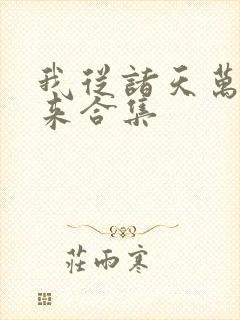 我從諸天萬
来合集
莊雨寒